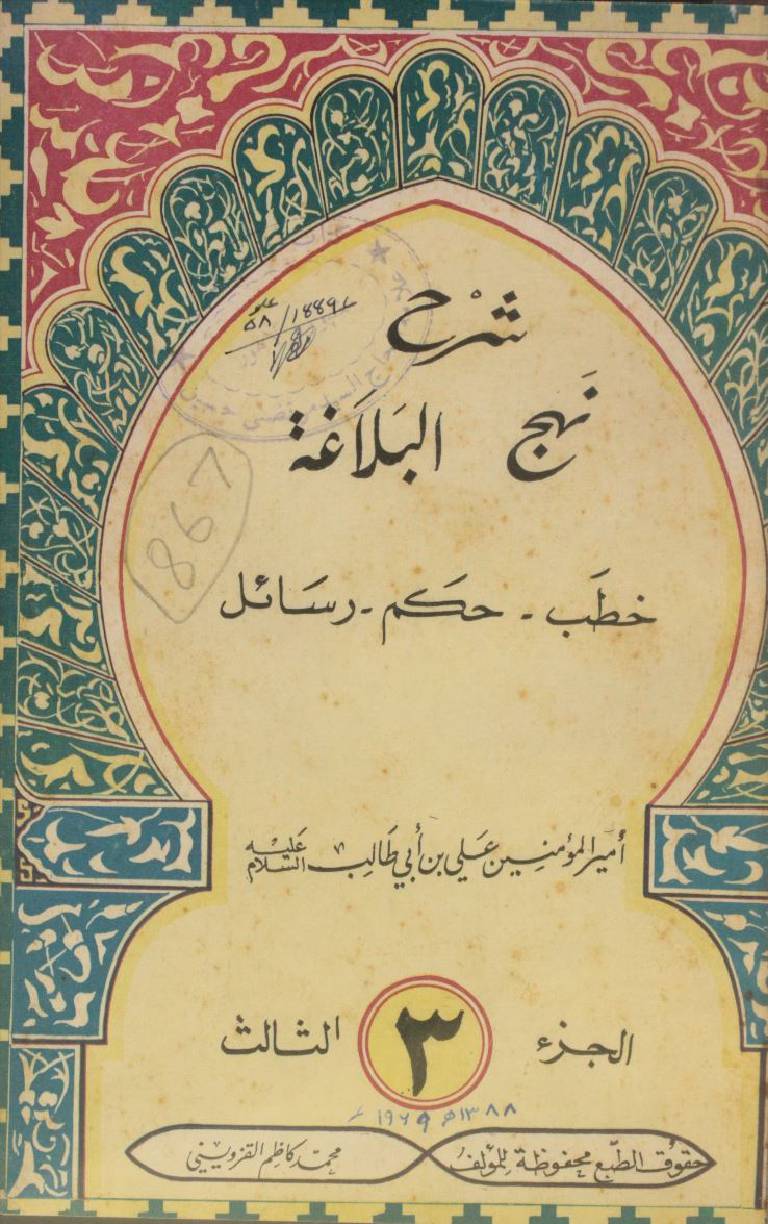 شرح
نَهج البَلَاغَة
خطَب - حكَم - رسَائل
أمير المؤمنين عَلي بن أبي طَالِب عَليْه السَّلام
الجزء ٣ الثالث
١٣٨٨ هـ ١٩٦٩ م
حقوق الطّبع محفوظة للمؤلف
محمّد كاظم القزويني
867